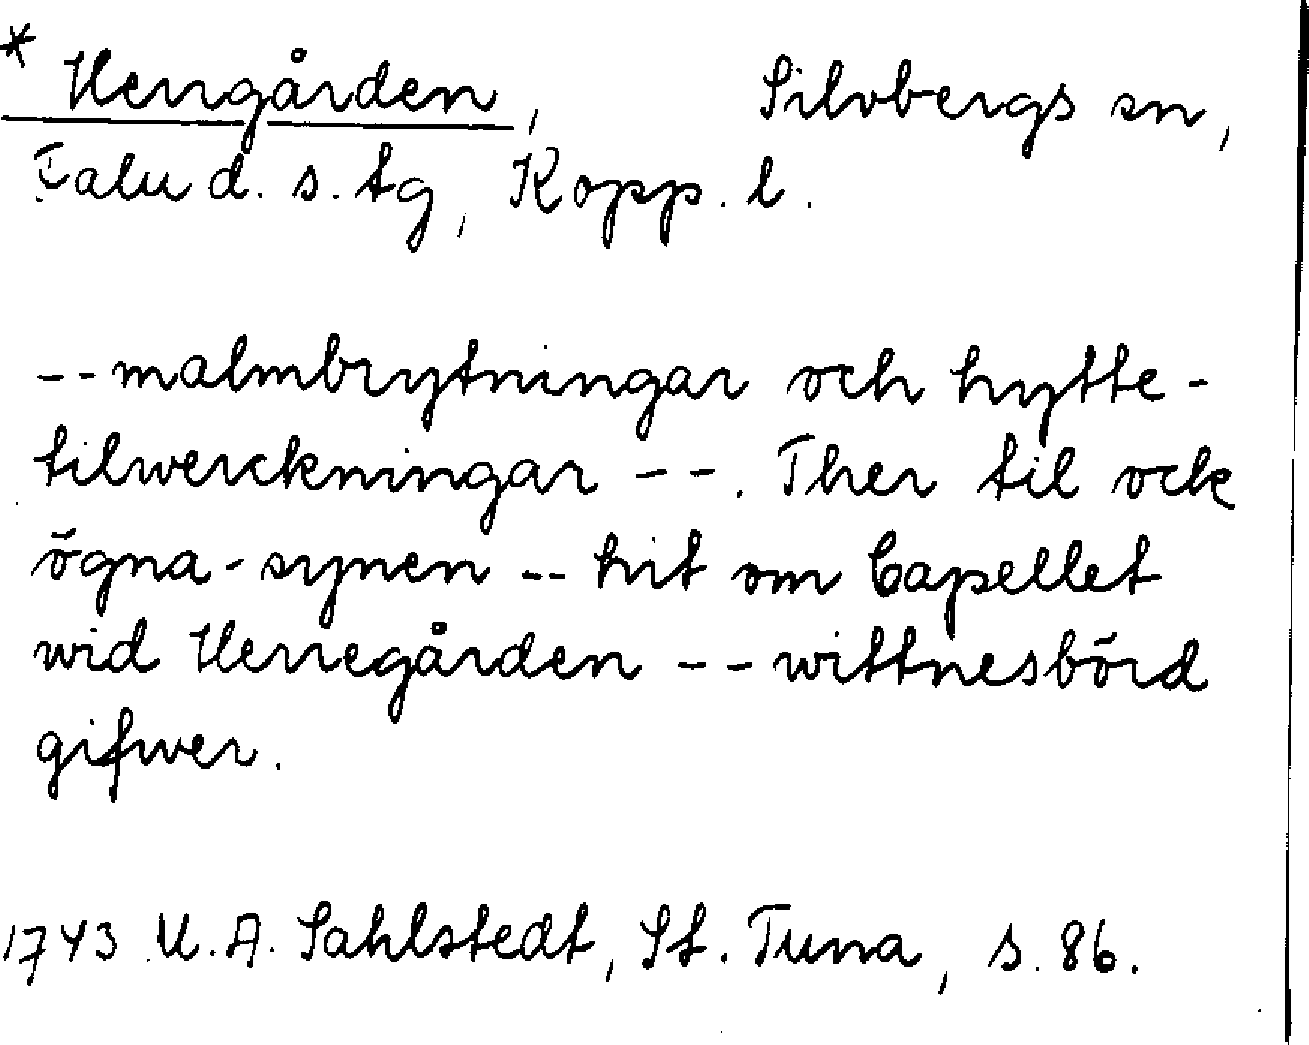 * Herrgården, Silvbergs sn,
Falu d. s. tg, Kopp. l.
-- malmbrytningar och hytte-
tilwerckningar --. Ther til ock
ögna-synen -- hit om Capellet
wid Herregården -- wittnesbörd
gifwer.
1743 U. A. Sahlstedt, St. Tuna, s. 86.